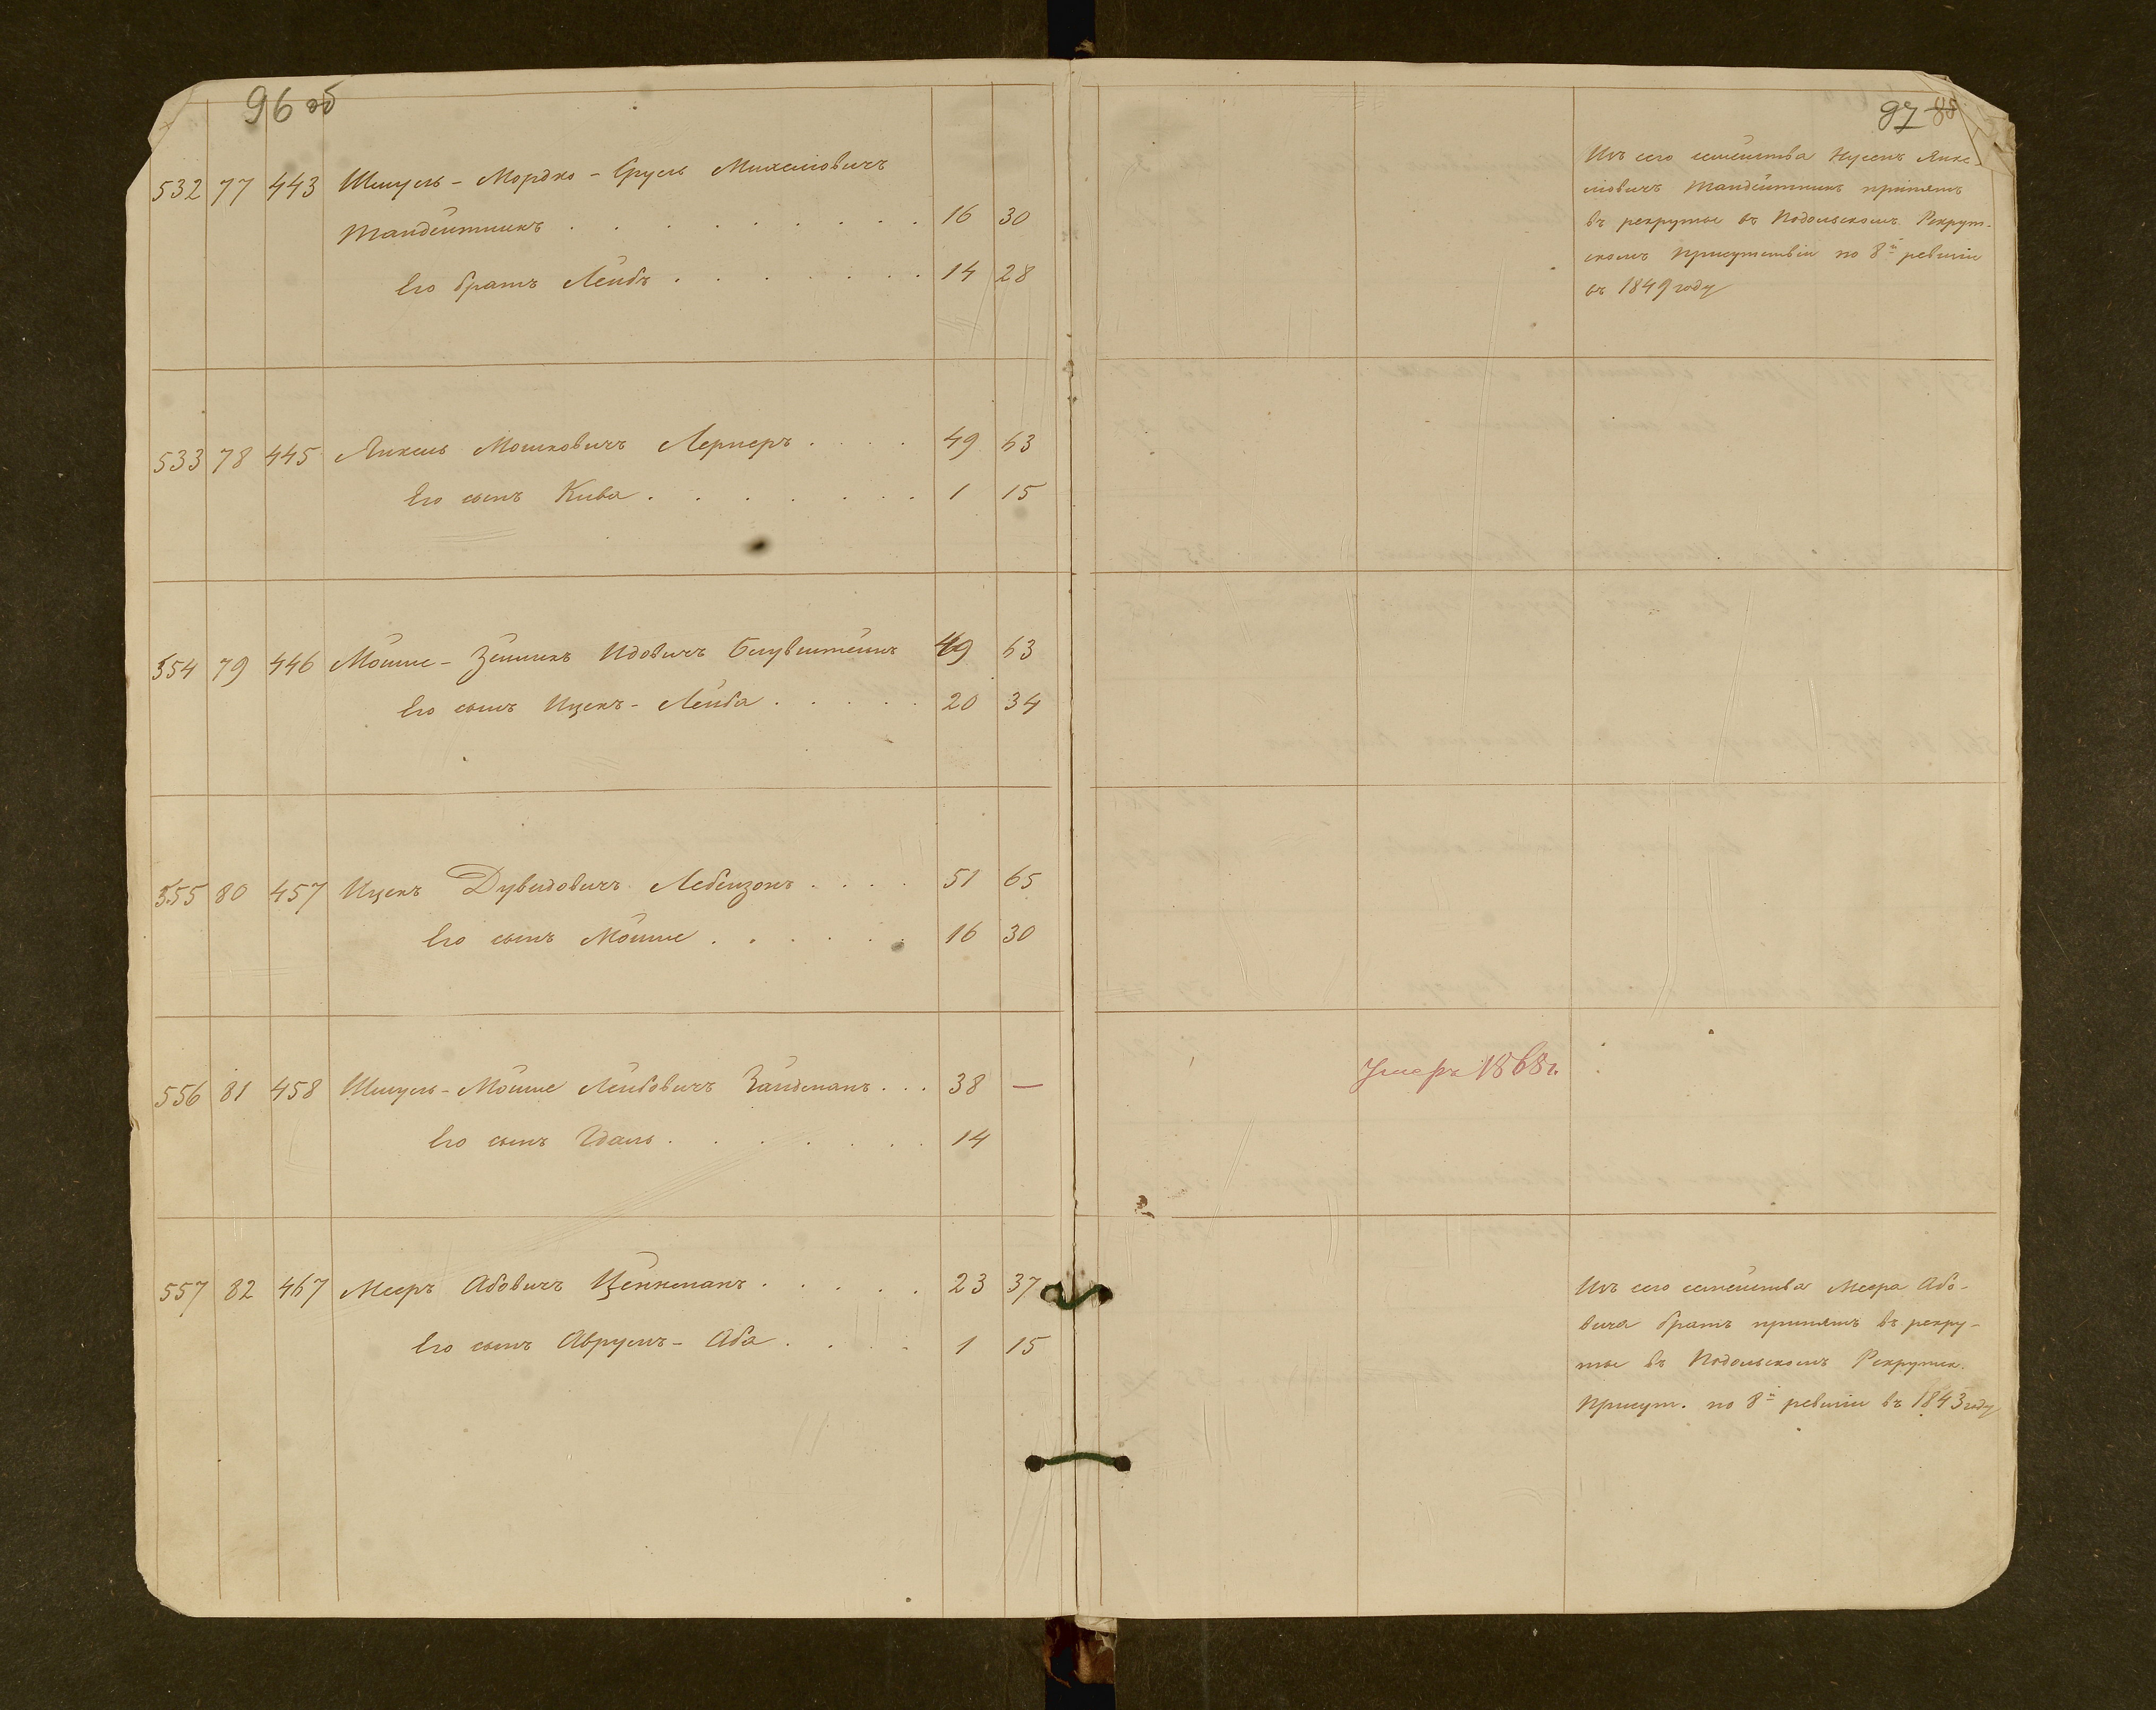 96 об
532 77 443 Шмуль - Мордко - Сруль Михелювичъ
Тандейтникъ . . . . . . . . 16 30
Его братъ Лейбъ . . . . . . . 14 28
533 78 445 Янкель Мошковичъ Лернеръ . . . . 49 63
Его сынъ Кива . . . . . . . 1 15
554 79 446 Мойше - Зейликъ Идовичъ Блувштейнъ 49 63
Его сынъ Ицекъ - Лейба . . . . . 20 34
555 80 457 Ицекъ Дувидовичъ Лебензонъ . . . . 51 65
Его сынъ Мойше . . . . . . 16 30
556 81 458 Шмуль - Мойше Лейбовичъ Зайдманъ . . . 38 —
Его сынъ Гдаль . . . . . . . 14
557 82 467 Мееръ Абовичъ Цейкманъ . . . . . 23 37
Его сынъ Аврумъ - Аба . . . . 1 15
97 85
Изъ сего семейства Нусенъ Янке-
лювичъ Тандейтникъ принятъ
въ рекруты въ Подольскомъ Рекрут-
скомъ присутствіи по 8й ревизіи
въ 1849 году
Умеръ 1868 г.
Изъ сего семейства Меера Або-
вича братъ принятъ въ рекру-
ты въ Подольскомъ Рекрутск.
Присут. по 8й ревизіи въ 1843 году